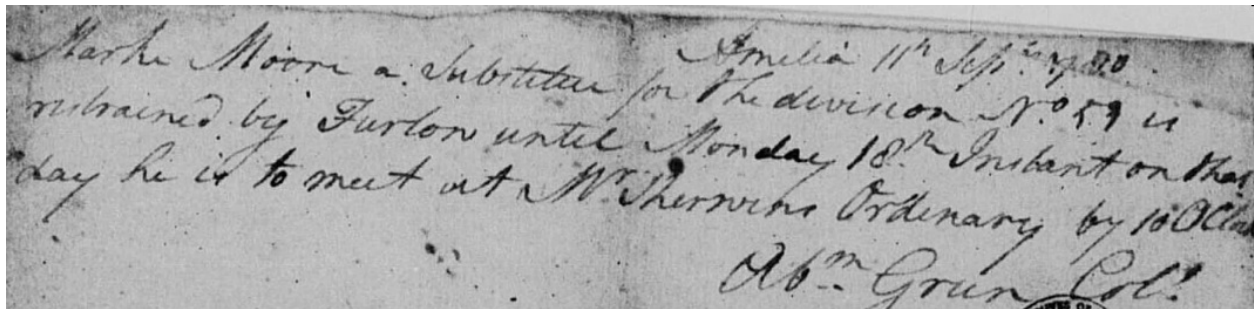 Amelia 11th Sepr. 1780
Marke Moore a Substitute for the division No 59 is
restrained by Furlow until Monday 18th Instant on that
day he is to meet at Mr. Sherwins Ordenary by 10 OClock
Abm Green Colo.